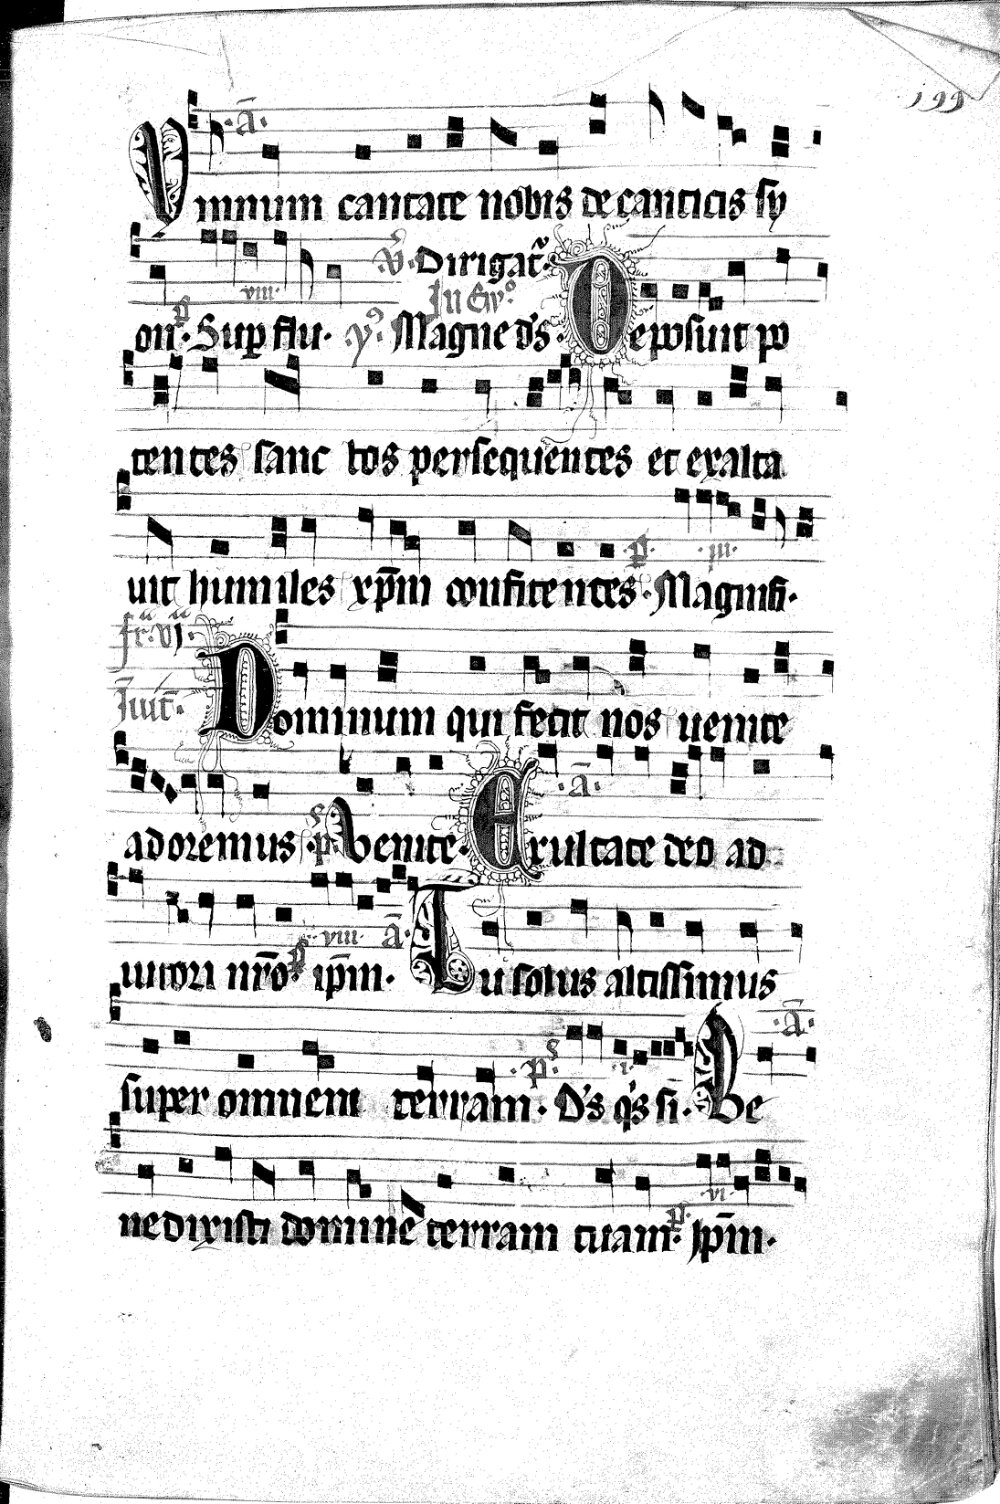 199
·ā·
Ymnum cantate nobis de canticis sy
v̄. Dirigat̄.
viii·
In Ew°
on·p̄s Sup flu· y̓· Magne d's· Deposuit po
tentes sanctos persequentes et exalta
p̄· ·iii·
uit humiles xp̄m confitentes· Magnifi·
fr̄· vi
Inuit̄· Dominum qui fecit nos uenite
·ā·
adoremus· p̄s Venite· Exultate deo ad
·viii· ā·
iutori nr̄o p̄s ip̄m· Tu solus altissimus
·ā·
super omnem terram· p̄s D's q's si· Be
vi·
nedixisti domine terram tuam· p̄s Ip̄m·